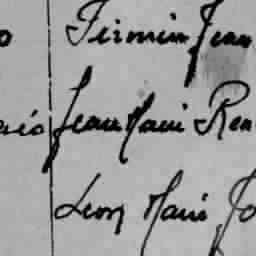 Firmin Jean
Jean Marie Ren
Leon Marie Jo